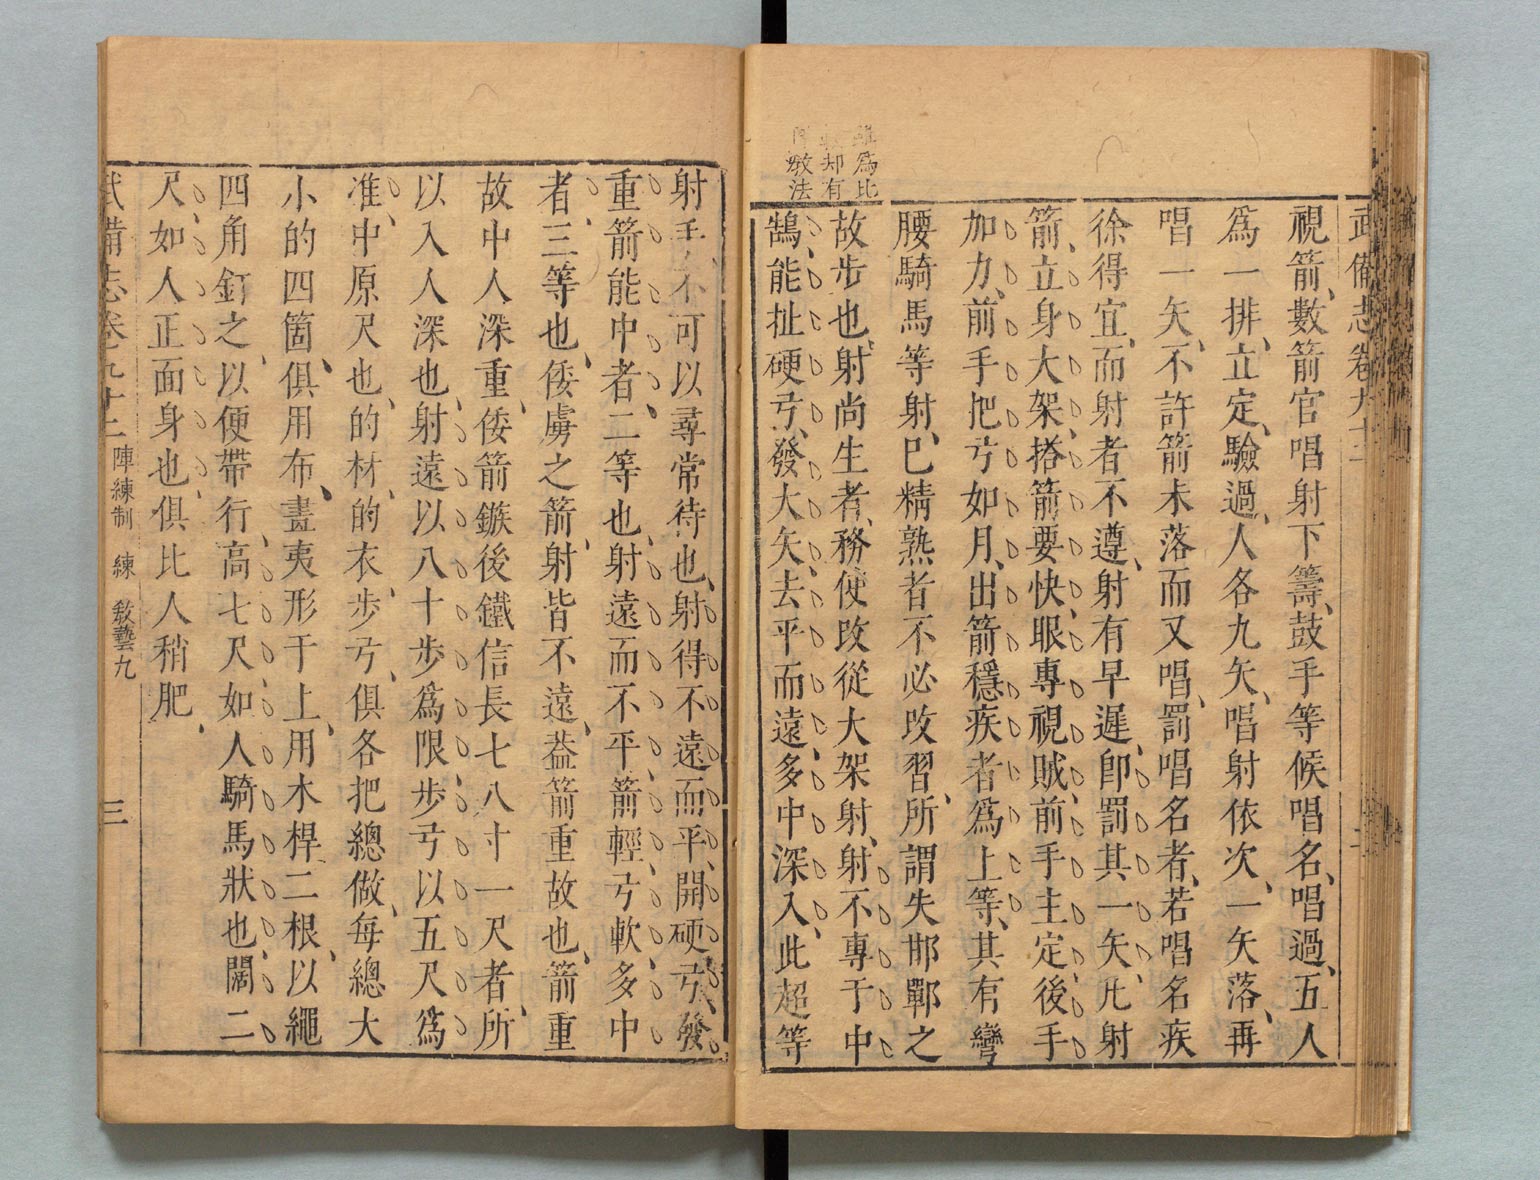 武備志卷九十二
視箭數箭官唱射下籌鼓手等候唱名唱過五人
爲一排立定驗過人各九矢唱射依次一矢落再
唱一矢不許箭未落而又唱罰唱名者若唱名疾
徐得宜而射者不遵射有早遲卽罰其一矢凡射
箭立身大架搭箭要快眼專視賊前手主定後手
加力前手把弓如月出箭穩疾者爲上等其有彎
腰騎馬等射已精熟者不必改習所謂失邯鄲之
故步也射尚生者務使改從大架射射不專于中
鵠能扯硬弓發大矢去平而遠多中深入此超等
爲比
却有
敎法
射手不可以尋常待也射得不遠而平開硬弓發
重箭能中者二等也射遠而不平箭輕弓軟多中
者三等也倭虜之箭射皆不遠葢箭重故也箭重
故中人深重倭箭鏃後鐵信長七八寸一尺者所
以入人深也射遠以八十步爲限步弓以五尺爲
准中原尺也的材的衣步弓俱各把總做每總大
小的四箇俱用布畫夷形于上用木桿二根以繩
四角釘之以便帶行高七尺如人騎馬狀也闊二
尺如人正面身也俱比人稍肥
武備志卷九十二 陣練制 練 敎藝九 三